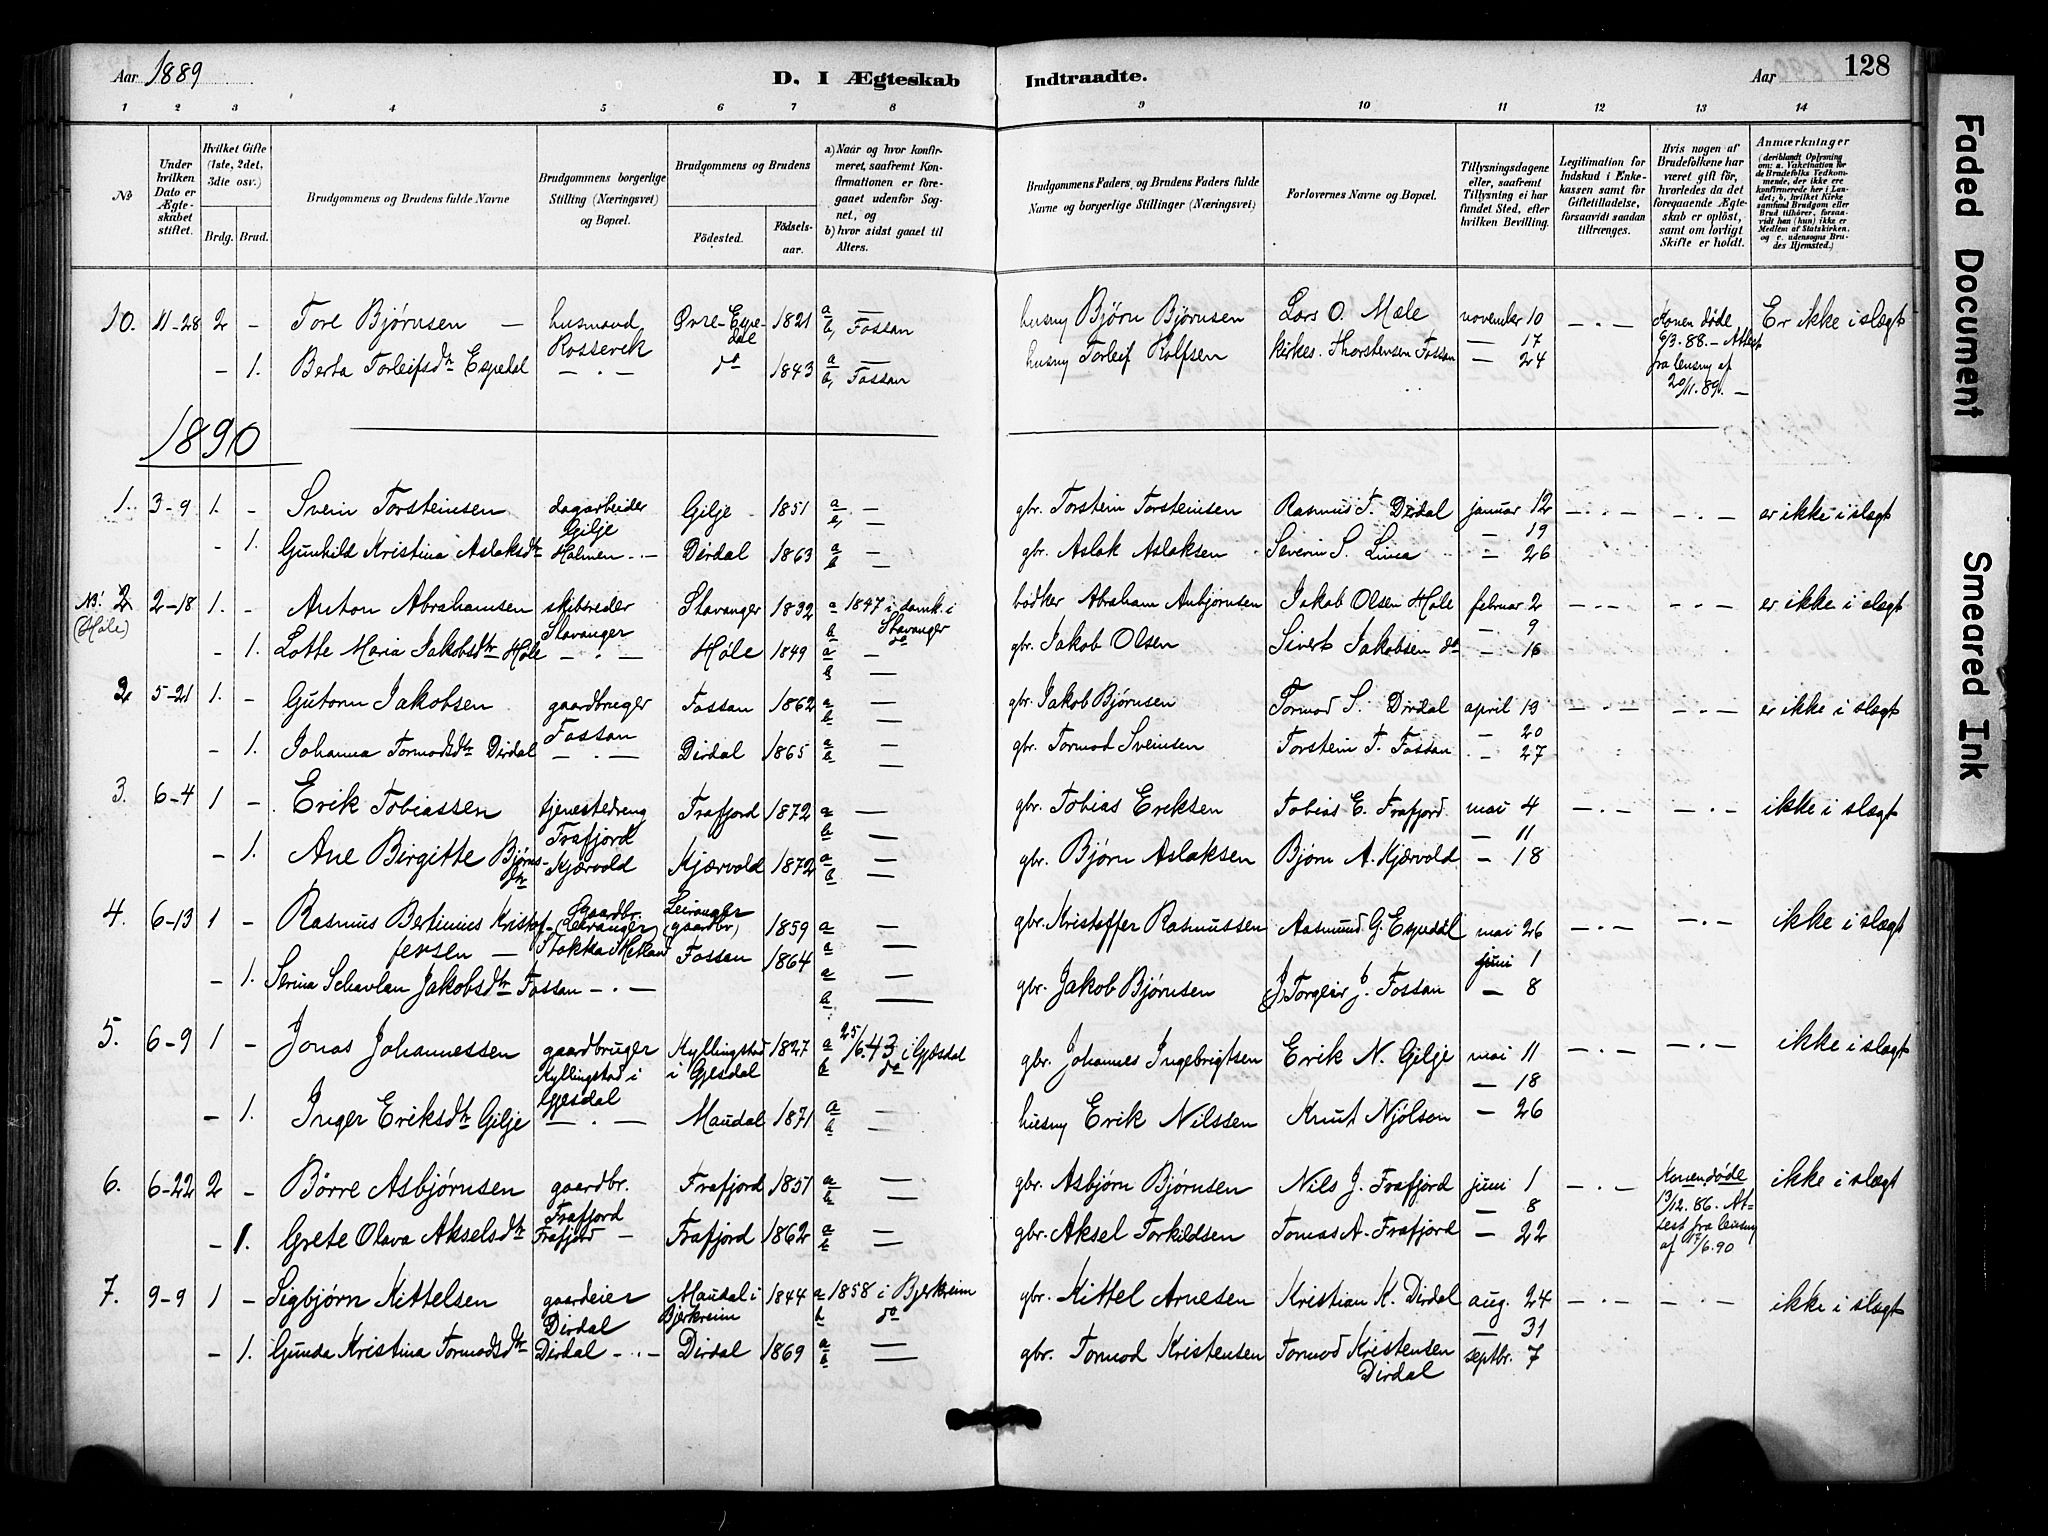 Aar 1889
D. I Ægteskab
Indtraadte.
Aar
128
1 2 3 4 5 6 7 8 9 10 11 12 13 14
No
Under hvilken Dato er Ægteskabet stiftet.
Hvilket Gifte (1ste, 2det, 3die osv.)
Brdg. Brud.
Brudgommens og Brudens fulde Navne
Brudgommens borgerlige Stilling (Næringsvei) og Bopæl.
Brudgommens og Brudens
Födested.
Födselsaar.
a) Naar og hvor konfirmeret, saafremt Konfirmationen er foregaaet udenfor Sognet, og
b) hvor sidst gaaet til Alters.
Brudgommens Faders, og Brudens Faders fulde Navne og borgerlige Stillinger (Næringsvei)
Forlovernes Navne og Bopæl.
Tillysningsdagene eller, saafremt Tillysning ei har fundet Sted, efter hvilken Bevilling.
Legitimation for Indskud i Enkekassen samt for Giftetilladelse, forsaavidt saadan tiltrænges.
Hvis nogen af Brudefolkene har været gift för, hvorledes da det foregaaende Ægteskab er oplöst, samt om lovligt Skifte er holdt.
Anmærkninger
(deriblandt Oplysning om: a. Vakcination for de Brudefolks Vedkommende, der ikke ere konfirmerede her i Landet; b, hvilket Kirkesamfund Brudgom eller Brud tilhörer, forsaavidt han (hun) ikke er Medlem af Statskirken, og c. udensogns Brudes Hjemsted.)
10. 11-28 2 - Tore Bjørnsen - husmand Øvre-Espedal 1821 a — b, Fossan husmg Bjørn Bjørnsen Lars O. Mæle november 10 — · — Konen døde Er ikke i slægt
Rossevik — 17 6/3.88. - Attest
- 1. Berta Torleifsdtr Espedal — · — do 1843 a — b, Fossan husmg Torleif Rolfsen kirkes. Thorstensen Fossan — 24 fra lensmg af
20/11.89. —
1890
1. 3-9 1. - Svein Torsteinsen dagarbeider Gilje 1851 a — b, gbr. Torstein Torsteinsen Rasmus T. Dirdal januar 12 — · — — · — er ikke i slægt
Gilje — 19
- 1. Gunhild Kristina Aslaksdtr Holmen - · - Dirdal 1863 a — b gbr. Aslak Aslaksen Severin S. Lima — 26
NB! 2 2-18 1. - Anton Abrahamsen skibsreder Stavanger 1832 a 1847 i domk. i Stavanger bødker Abraham Anbjørnsen Jakob Olsen Høle februar 2 — · — — · — er ikke i slægt
(Høle) Stavanger b do — 9
- 1. Lotte Maria Jakobsdtr Høle — · — Høle 1849 a — b — gbr. Jakob Olsen Sivert Jakobsen do — 16
2 5-21 1. - Gutorm Jakobsen gaardbruger Fossan 1862 a — b — gbr. Jakob Bjørnsen Tormod S. Dirdal april 13 — · — — · — er ikke i slægt
Fossan — 20
- 1. Johanna Tormodsdtr Dirdal — · — Dirdal 1865 a — b — gbr. Tormod Sveinsen Torstein T. Fossan — 27
3. 6-4 1 - Erik Tobiassen tjenestedreng Frafjord 1872 a — b — gbr. Tobias Eriksen Tobias E. Frafjord mai 4 — · — — · — ikke i slægt
Frafjord — 11
- 1. Ane Birgitte Bjørnsdtr Kjærvold Kjærvold 1872 a — b — gbr. Bjørn Aslaksen Bjørn A. Kjærvold — 18
4. 6-13 1 - Rasmus Bertinius Kristof- Gaardbr. (Leiranger) Leiranger (gaardbr) 1859 a — gbr. Kristoffer Rasmussen Aasmund G. Espedal mai 26 — · — — · — ikke i slægt
fersen — Stokka i Hetland Fossan 1864 a — juni 1
- 1. Serina Schavlan Jakobsdtr Fossan - · — a — b — gbr. Jakob Bjørnsen Torgeir J. Fossan — 8
5. 6-9 1 - Jonas Johannessen gaardbruger Kyllingstad i Gjesdal 1827 a 25/6.43 i Gjesdal b do gbr. Johannes Ingebrigtsen Erik N. Gilje mai 11 — · — — · — ikke i slægt
Kyllingstad i Gjesdal — 18
- 1. Inger Eriksdtr Gilje — · — Maudal 1871 a — b — husmg Erik Nilssen Knut Njølsen — 26
6. 6-22 2 - Børre Asbjørnsen gaardbr. Frafjord 1851 a — b — gbr. Asbjørn Bjørnsen Nils J. Frafjord juni 1 — · — Konen døde ikke i slægt
Frafjord — 8 13/12.86. At-
- 1. Grete Olava Akselsdtr Frafjord — Frafjord 1862 a — b — gbr. Aksel Torkildsen Tomas A. Frafjord — 22 test fra lensmg
af 17/6.90
7. 9-9 1 - Sigbjørn Kittelsen gaardeier Maudal i Bjerkreim 1844 a 1858 i Bjerkreim b do gbr. Kittel Arnesen Kristian K. Dirdal aug. 24 — · — — · — ikke i slægt
Dirdal — 31
- 1. Gunda Kristina Tormodsdtr Dirdal - · - Dirdal 1869 a — b — gbr. Tormod Kristensen Tormod Kristensen Dirdal septbr. 7
Faded Document
Smeared Ink